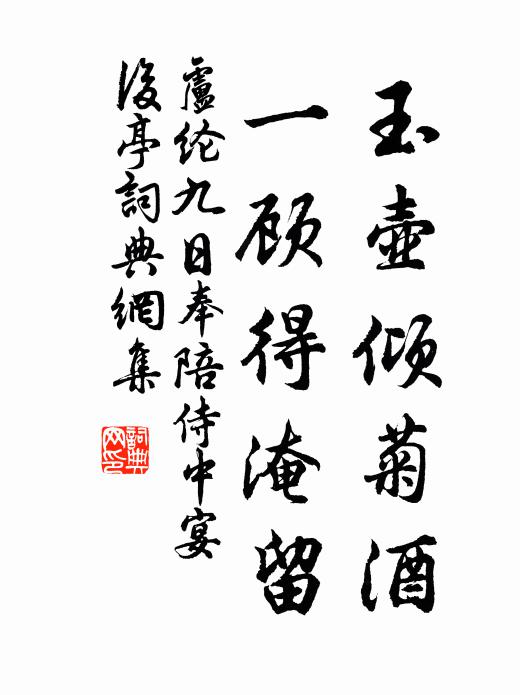 玉壺傾菊酒
一顾得淹留
盧纶九日奉陪侍中宴
後亭詞典網集
詞典
网印